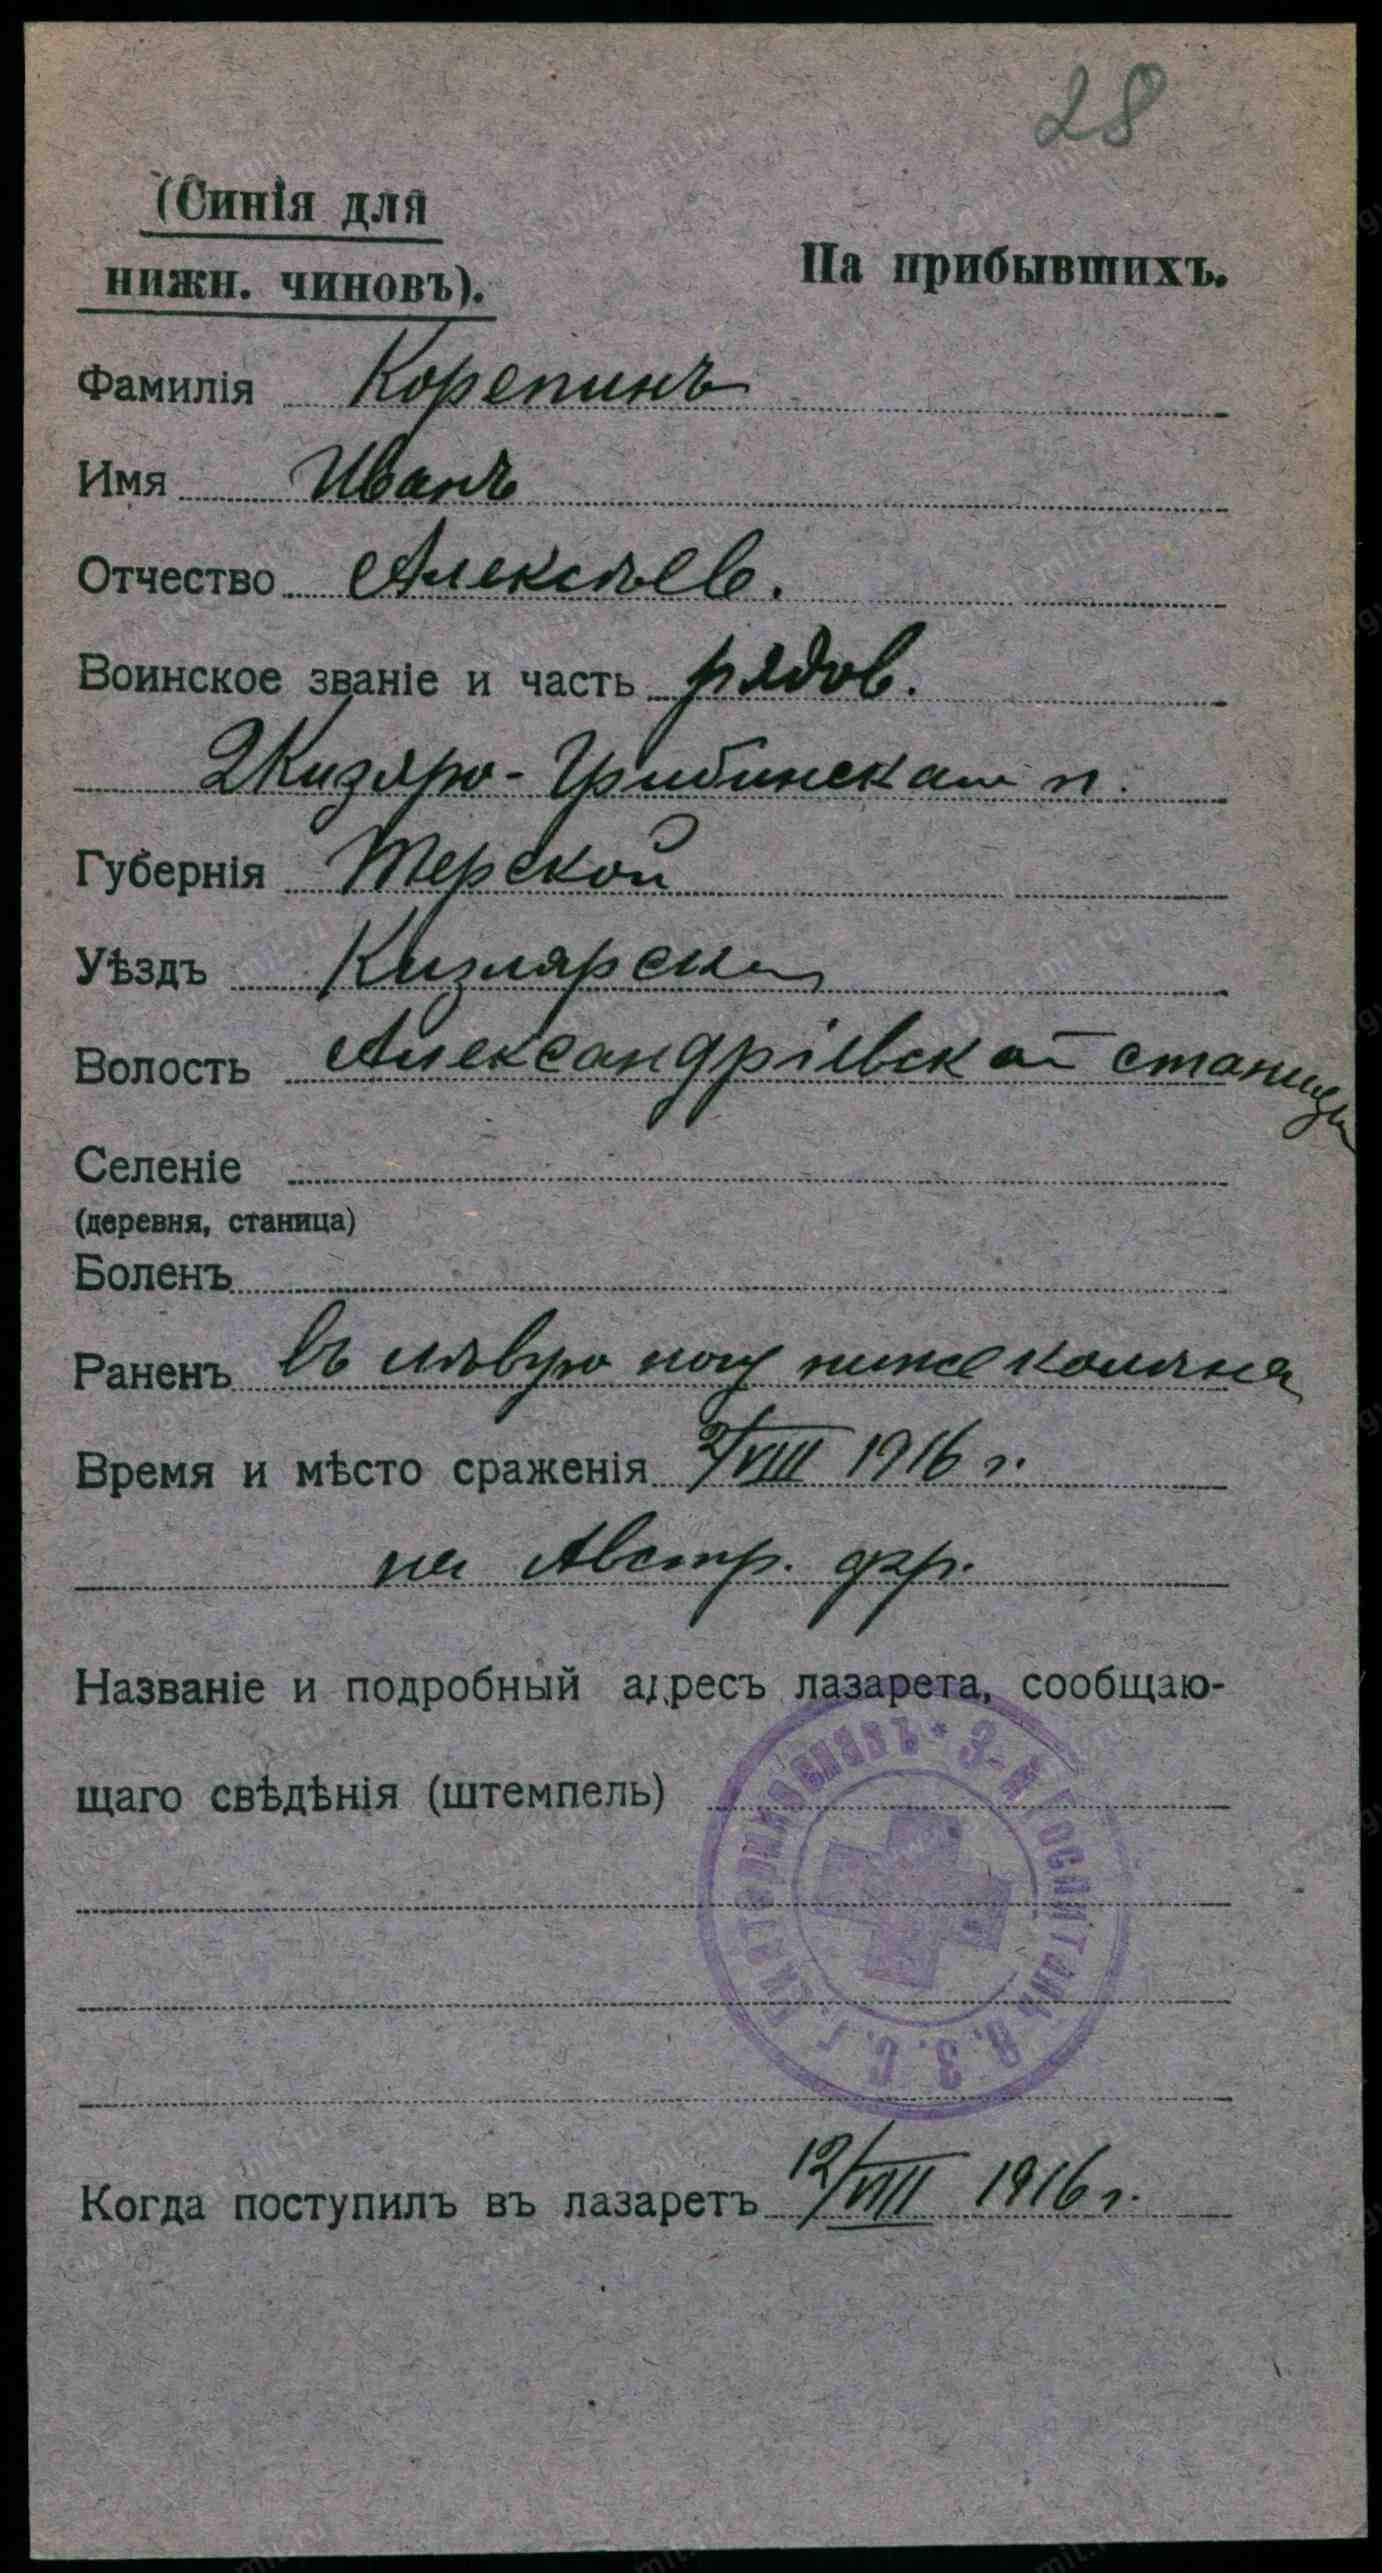 28
(Синія для
нижн. чиновъ).
На прибывшихъ.
Фамилія Корепинъ
Имя Иванъ
Отчество Алексѣев.
Воинское званіе и часть рядов.
2 Кизляро-Гребинскаго п.
Губернія Терской
Уѣздъ Кизлярск
Волость Александріевской станицы
Селеніе
(деревня, станица)
Боленъ
Раненъ въ лѣвую ногу ниже колѣна
Время и мѣсто сраженія 2/VIII 1916 г.
на Австр. фр.
Названіе и подробный адресъ лазарета, сообщаю-
щаго свѣдѣнія (штемпель)
3-й Госпиталь В. З. С. г. Екатеринодаръ
Когда поступилъ въ лазаретъ 12/VIII 1916 г.